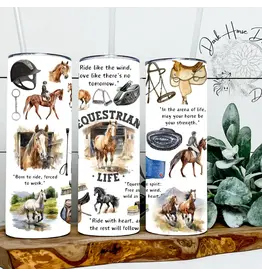 "Ride like the wind,
love like there's no
tomorrow."
EQUESTRIAN
LIFE
"Born to ride, forced
to work."
"In the arena of life,
may your horse be
your strength."
"Equestrian spirit:
Free as the wind,
wild as the
"Ride with heart, and
the rest will follow."
Dark Horse